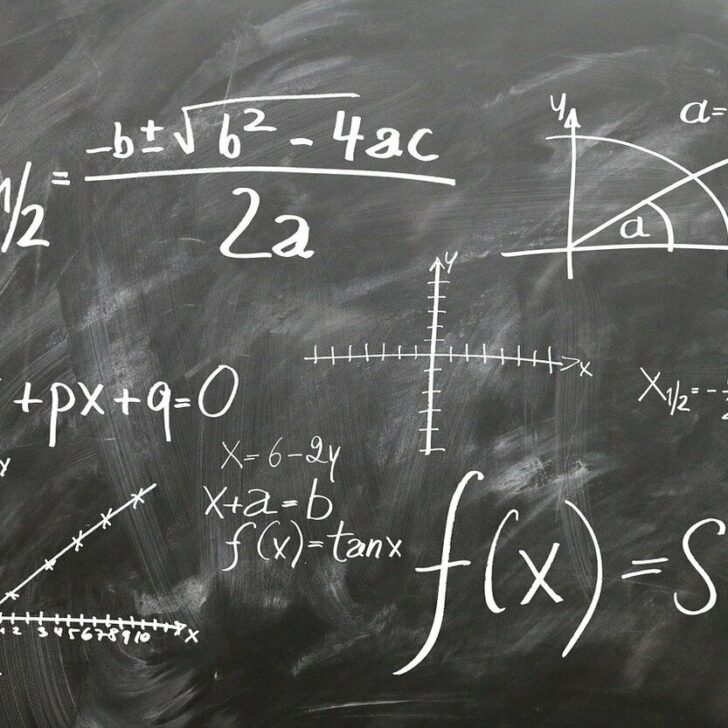 1/2 = -b±√b² - 4ac / 2a
y
a=
a
y
x
+px+q=0
X1/2=-
x=6-2y
x+a=b
f(x)=tanx
f(x)=S
1 2 3 4 5 6 7 8 9 10 x